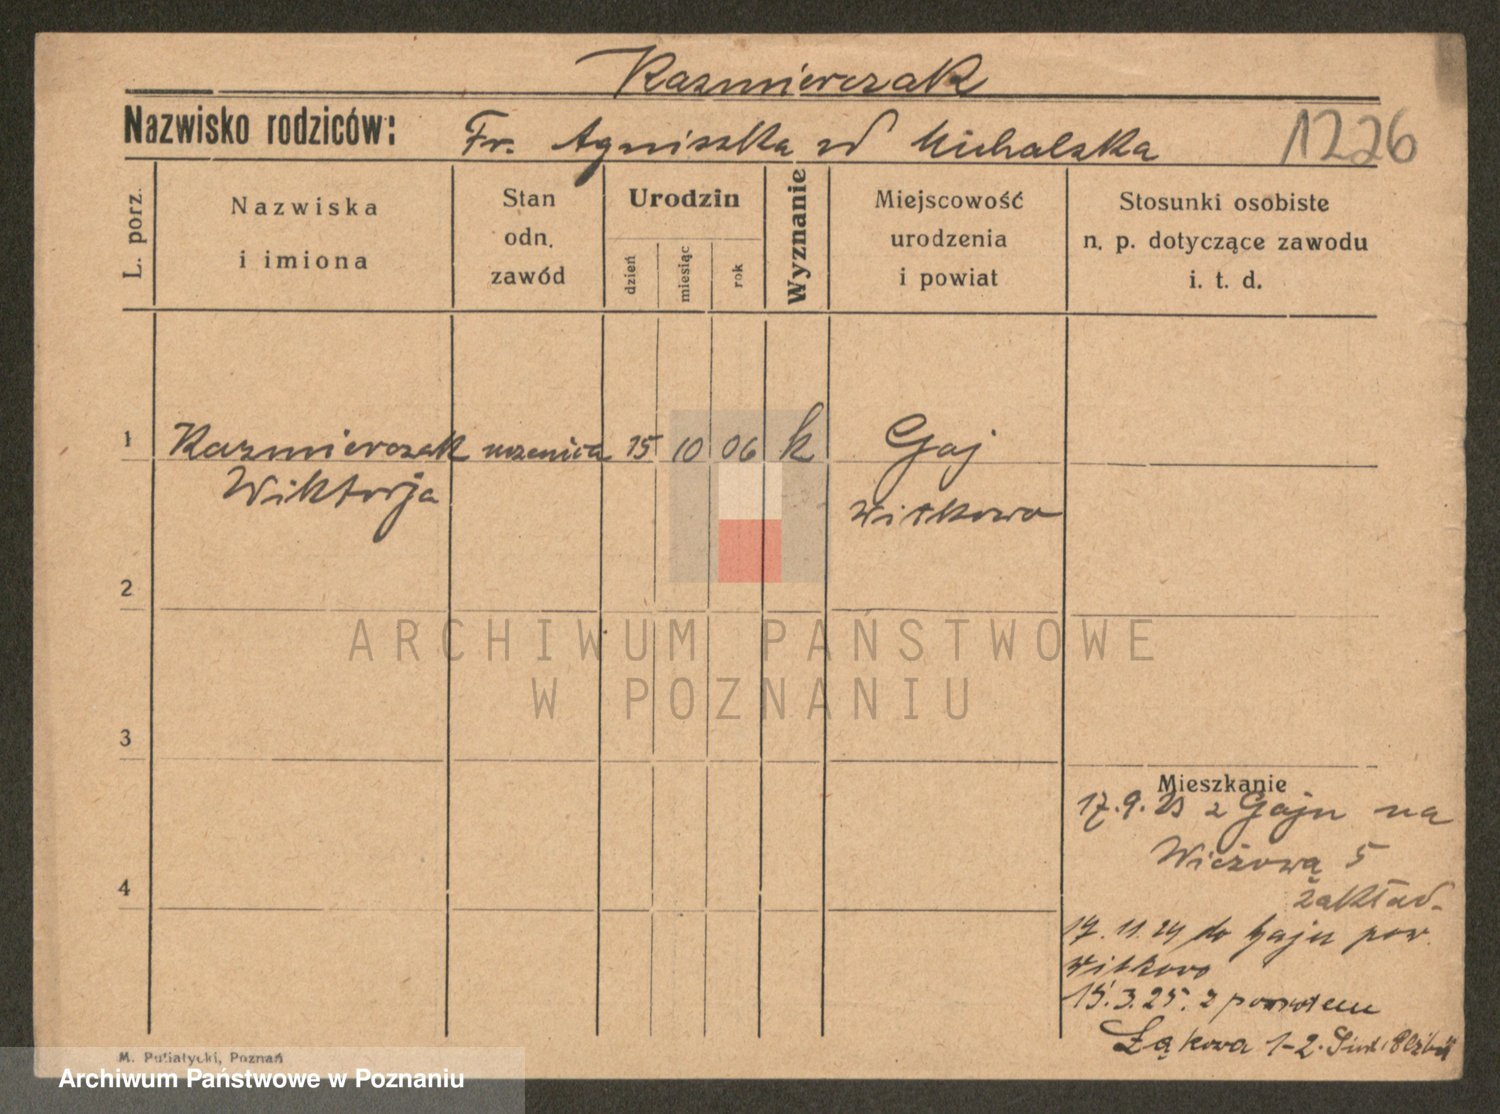 Kazmierczak
Nazwisko rodziców: Fr. Agniszka zd Michalska 1226
L. porz.
Nazwiska
i imiona
Stan
odn.
zawód
Urodzin
dzień
miesiąc
rok
Wyznanie
Miejscowość
urodzenia
i powiat
Stosunki osobiste
n. p. dotyczące zawodu
i. t. d.
1 Kazmierczak uczenica 15 10 06 k Gaj
Wiktorja Witkowo
2
ARCHIWUM PAŃSTWOWE
W POZNANIU
3
Mieszkanie
17.9.23 z Gaju na
Wieżową 5
zakład.
4
17.11.24 do Gaju pow.
Witkowo
15.3.25. z powrotem
Łąkowa 1-2.
M. Putiatycki, Poznań
Archiwum Państwowe w Poznaniu